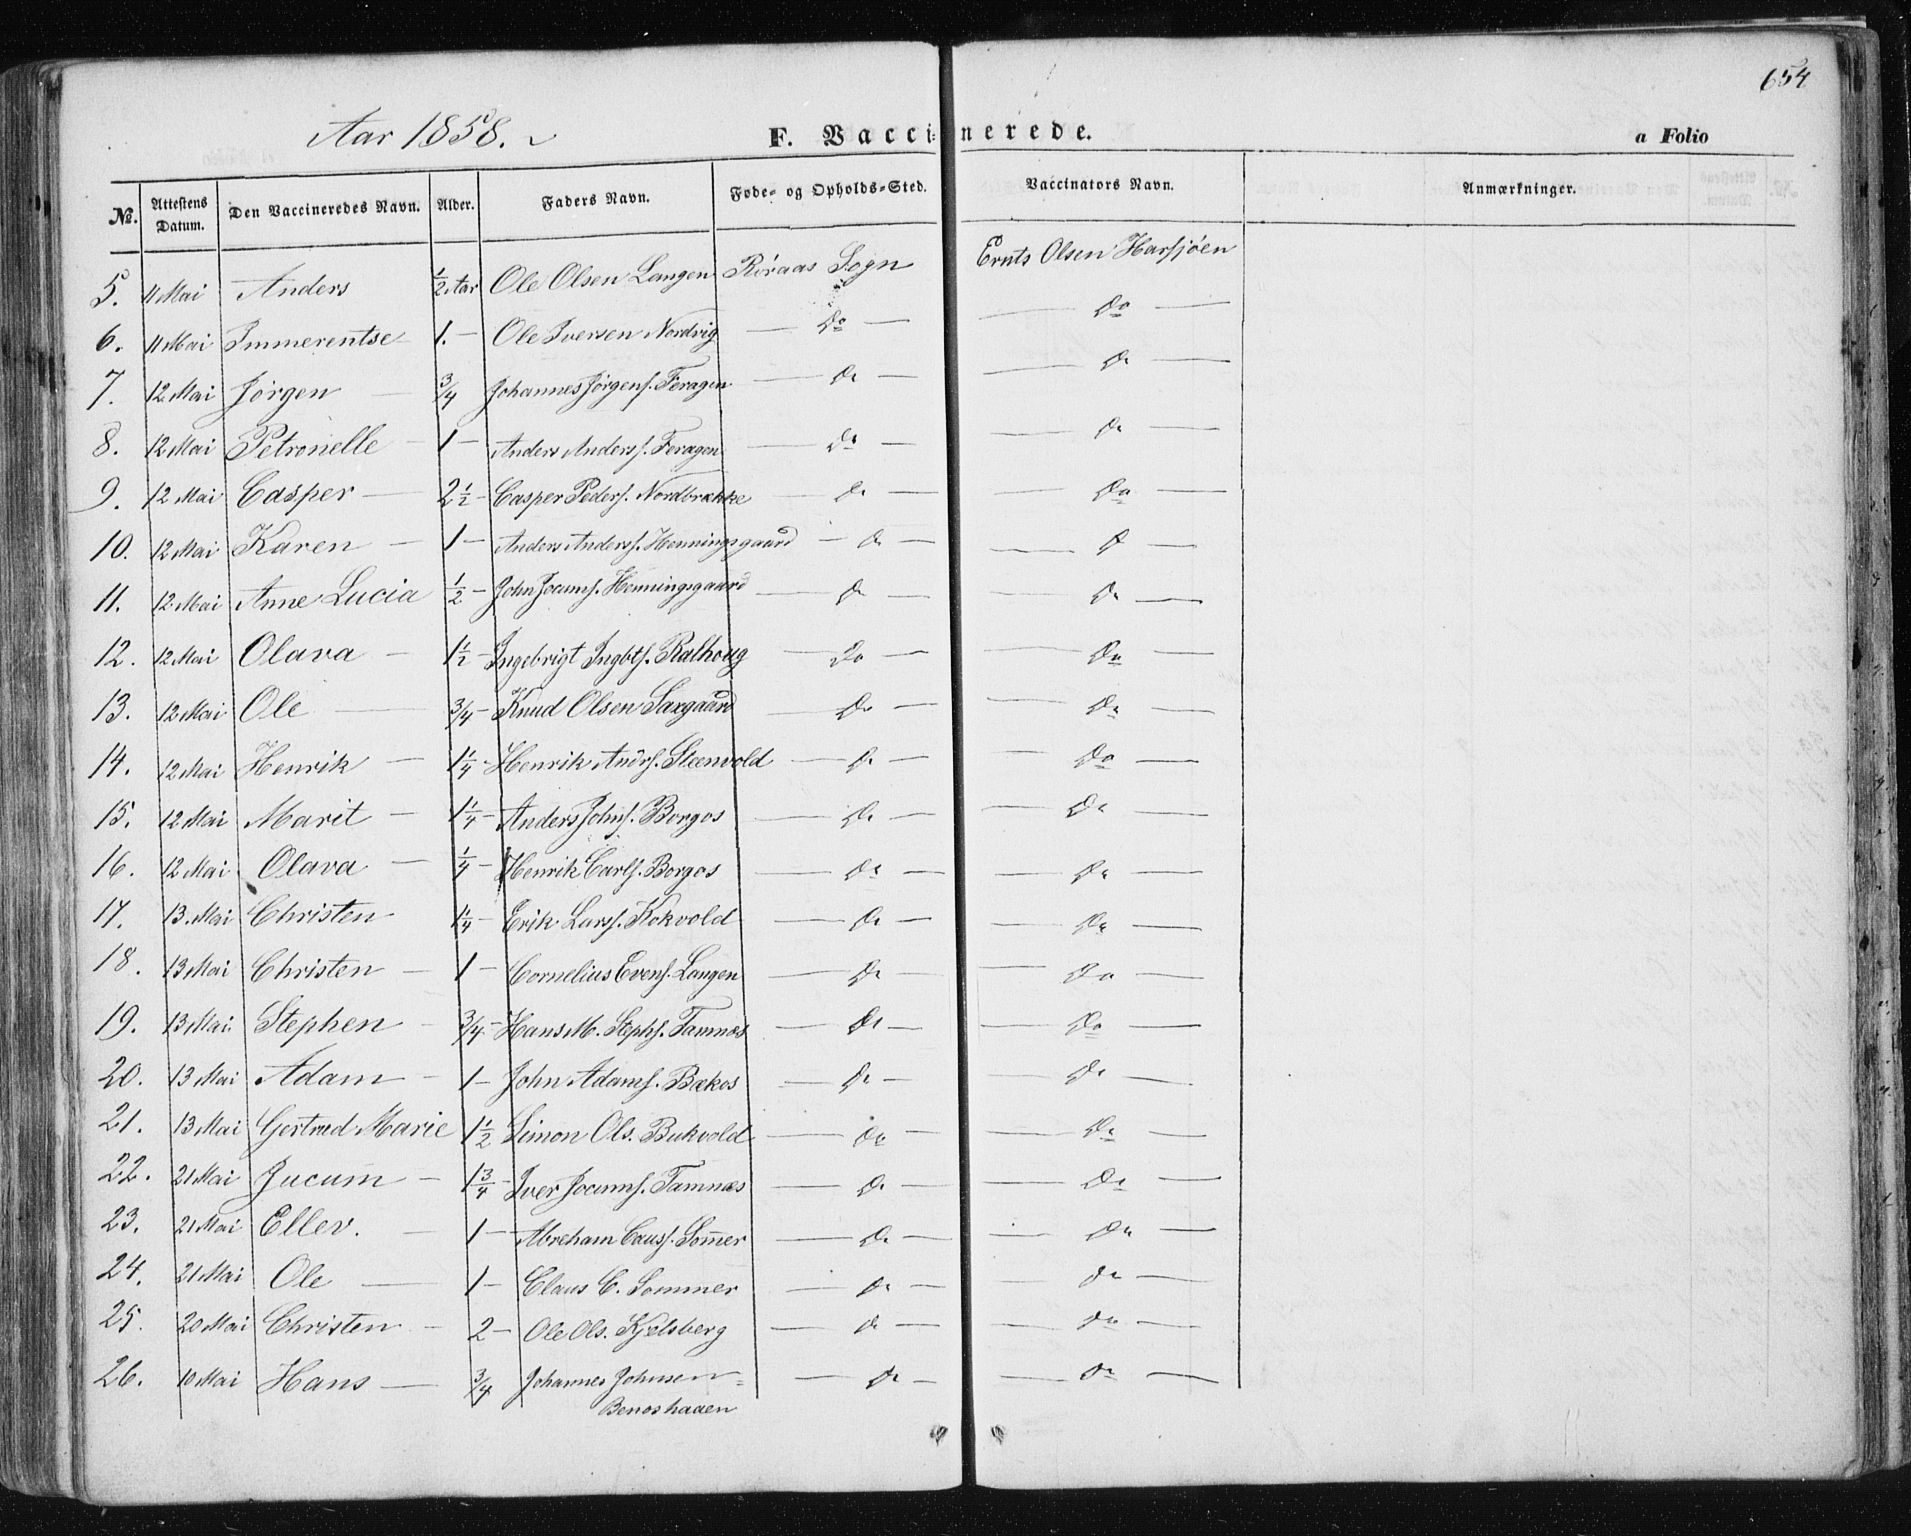 654
Aar 1858.
F. Vaccinerede.
a Folio
No. Attestens Datum. Den Vaccineredes Navn. Alder. Faders Navn. Føde- og Opholds-Sted. Vaccinators Navn. Anmærkninger.
5. 11 Mai Anders ½ Aar Ole Olsen Langen Røraas Sogn Ernts Olsen Harsjøen
6. 11 Mai Immerentse 1. – Ole Iversen Nordvig — Do — — Do —
7. 12 Mai Jørgen — ¾ Johannes Jørgens. Feragen — Do — — Do —
8. 12 Mai Petronelle 1 – Anders Anders. Feragen — Do — — Do —
9. 12 Mai Casper — 2½ – Casper Peders. Nordbrække — Do — — Do —
10. 12 Mai Karen — 1 – Anders Anders. Henningsgaard — Do — — Do —
11. 12 Mai Anne Lucia ½ – John Jocums. Henningsgaard — Do — — Do —
12. 12 Mai Olava — 1½ – Ingebrigt Ingbts. Ralhoug — Do — — Do —
13. 12 Mai Ole — ¾ – Knud Olsen Saxgaard — Do — — Do —
14. 12 Mai Henrik — 1¼ – Henrik Andrs. Steenvold — Do — — Do —
15. 12 Mai Marit — 1¼ – Anders Johns. Borgos — Do — — Do —
16. 12 Mai Olava — ¼ – Henrik Carls. Borgos — Do — — Do —
17. 13. Mai Christen 1¼ – Erik Larss. Kokvold — Do — — Do —
18. 13 Mai Christen — 1 – Cornelius Evens. Langen — Do — — Do —
19. 13 Mai Stephen — ¾ – Hans M. Stephs. Tamnæs — Do — — Do —
20. 13 Mai Adam — 1 – John Adams. Bækos — Do — — Do —
21. 13 Mai Gertrud Marie 1½ Simon Ols. Bukvold — Do — — Do —
22. 21 Mai Jucum — 1¾ – Iver Jocums. Tamnæs — Do — — Do —
23. 21 Mai Ellev. — 1 – Abreham Causs. Som̄er — Do — — Do —
24. 21 Mai Ole — 1 – Claus C. Sommer — Do — — Do —
25. 20 Mai Christen — 2 – Ole Ols. Kjelsberg — Do — — Do —
26. 10 Mai Hans — ¾ Johannes Johnsen= — Do — — Do —
Benoshaaen